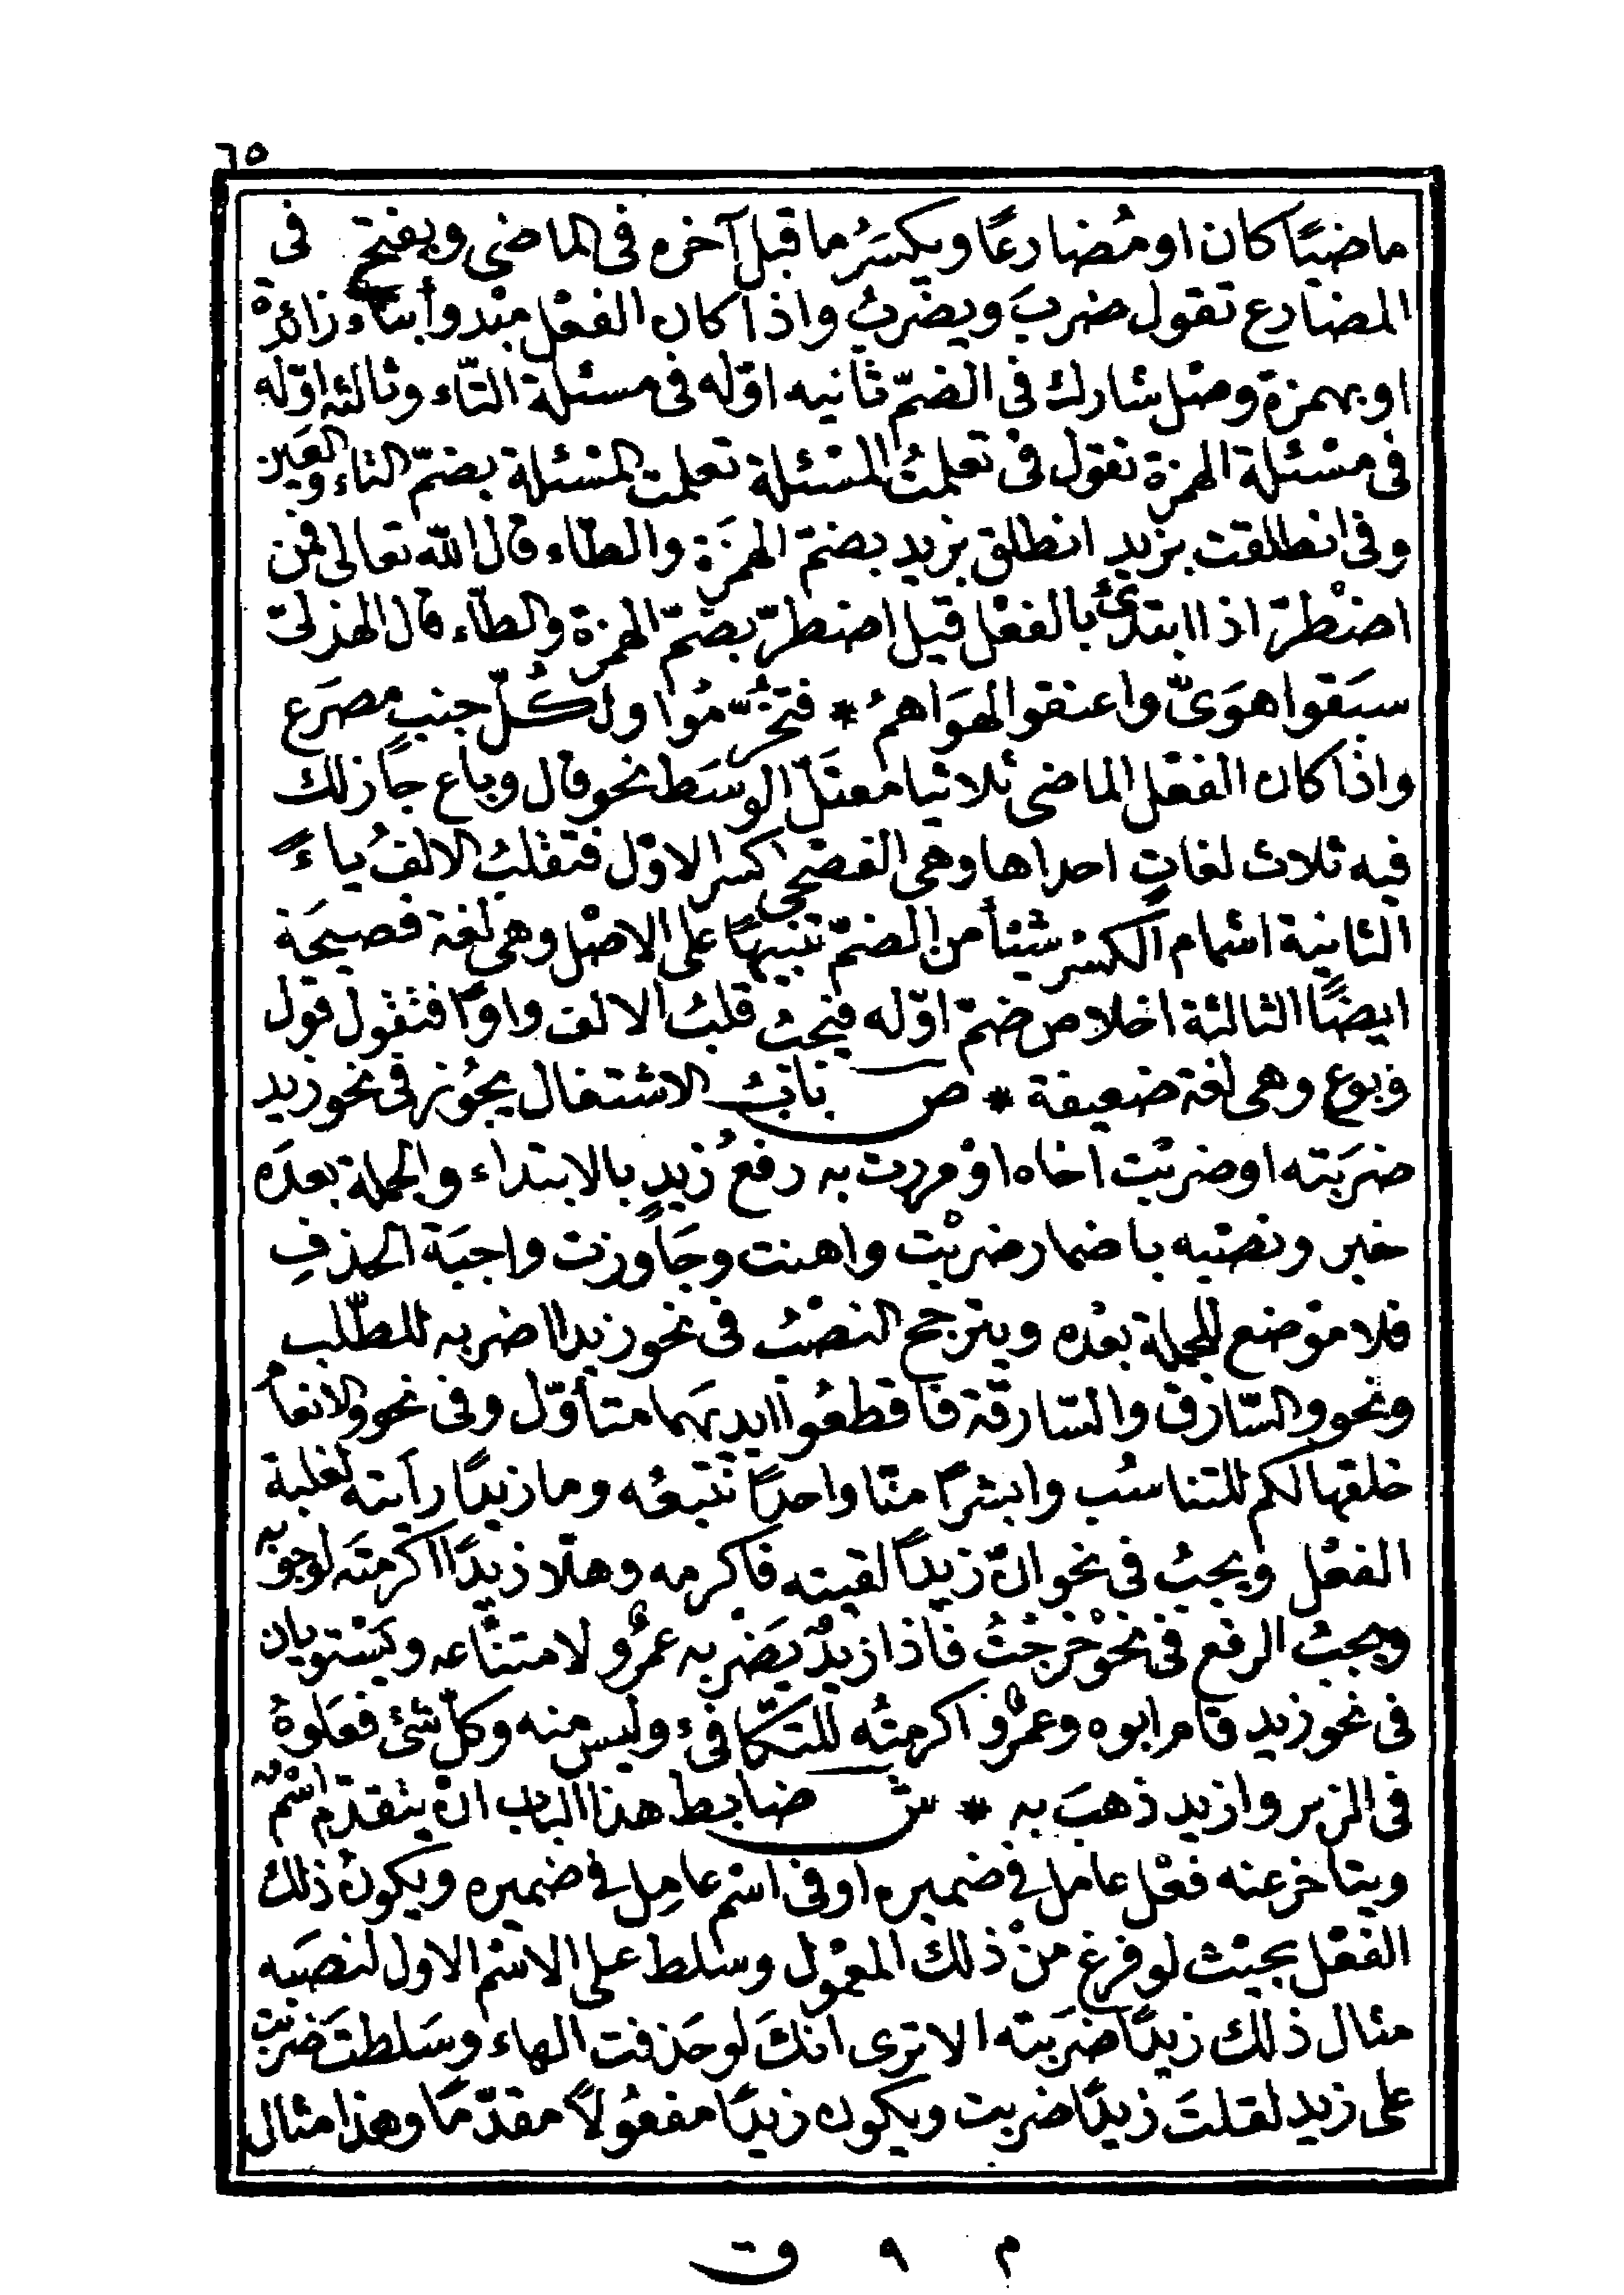 ٦٥
ماضيًا كان او مُضارعًا ويكسَرُ ما قبل آخره فى الماضى ويفتح فى
المضارع تقول ضربَ ويضربُ واذا كان الفعْل مبْدوأ بتاء زائدة
او بهمزة وصْل شارك فى الضمّ ثانيه اوّله فى مسئلة التّاء وثالثه اوّله
فى مسْئلة الهمزة تقول فى تعلمتُ المسْئلة تعلمت المسْئلة بضمّ التاء والعَين
وفى انطلقت بزيدٍ انطلق بزيد بضمّ الهمزَة والطّاء قال الله تعالى فمن
اضْطرّ اذا ابتدئ بالفعْل قيل اضطرّ بضمّ الهمزة والطّاء قال الهذلىّ
سبَقوا هوَىّ واعنقوا لهوَاهمُ * فتخُرّموُا ولكُلّ جنبٍ مصرَع
واذا كان الفعْل الماضى ثلاثيا معتلّ الوسَط نحو قال وباع جاز لك
فيه ثلاث لغاتٍ احداها وهى الفصْحى كسر الاوّل فتقْلبُ الالفُ ياءً
الثانية اشمام الكسْر شيئاً من الضمّ تنبيهًا على الاصْل وهى لغة فصيحَة
ايضًا الثالثة اخلاص ضمّ اوّله فيجبُ قلبُ الالف واوًا فتقول قول
وبوع وهى لغة ضعيفة * ص بابُ الاشتغال يجُوز فى نحو زيد
ضربَته او ضربْت اخاه اوْ مررت به رفعُ زيدٍ بالابتداء والجملة بعدَه
خبر ونصْبه باضمار ضربْت واهنت وجَاوزت واجبَة الحذفِ
فلا موْضع للجملة بعْده ويترجح النصْبُ فى نحو زيدا اضربه للطّلب
ونحو والسّارق والسّارقة فاقطعُوا ايديهَما متأوّل وفى نحو والانعام
خلقها لكم للتناسُب وابشرًا منّا واحدًا نتبعُه وما زيدًا رأيته لغلبة
الفعْل ويجبُ فى نحو انْ زيدًا لقيته فاكرمه وهلّا زيدًا اكرمتَه لوجوبه
ويجبُ الرفع فى نحْو خرجْتُ فاذا زيدٌ يَضْربه عمرٌو لامتناعه ويَسْتويان
فى نحو زيد قام ابوه وعمرٌو اكرمتُه للتكافئ وليس منه وكلّ شئ فعَلوهُ
فى الزبر وازيد ذهبَ به * ش ضابط هذا الباب انْ يتقدّم اسْم
ويتاخر عنه فعْل عامل فى ضميره او فى اسْم عامِل فى ضميره ويكونُ ذلك
الفعْل بحيْث لو فرغ منْ ذلك المعْمول وسلط على الاسْم الاول لنصَبه
مثال ذلك زيدًا ضرَبته الا ترى انكَ لو حَذفت الهاء وسَلطتَ ضرَبت
على زيد لقلتَ زيدًا ضربت ويكون زيدًا مفعُولاً مقدّمًا وهذا مثال
م ٩ ق